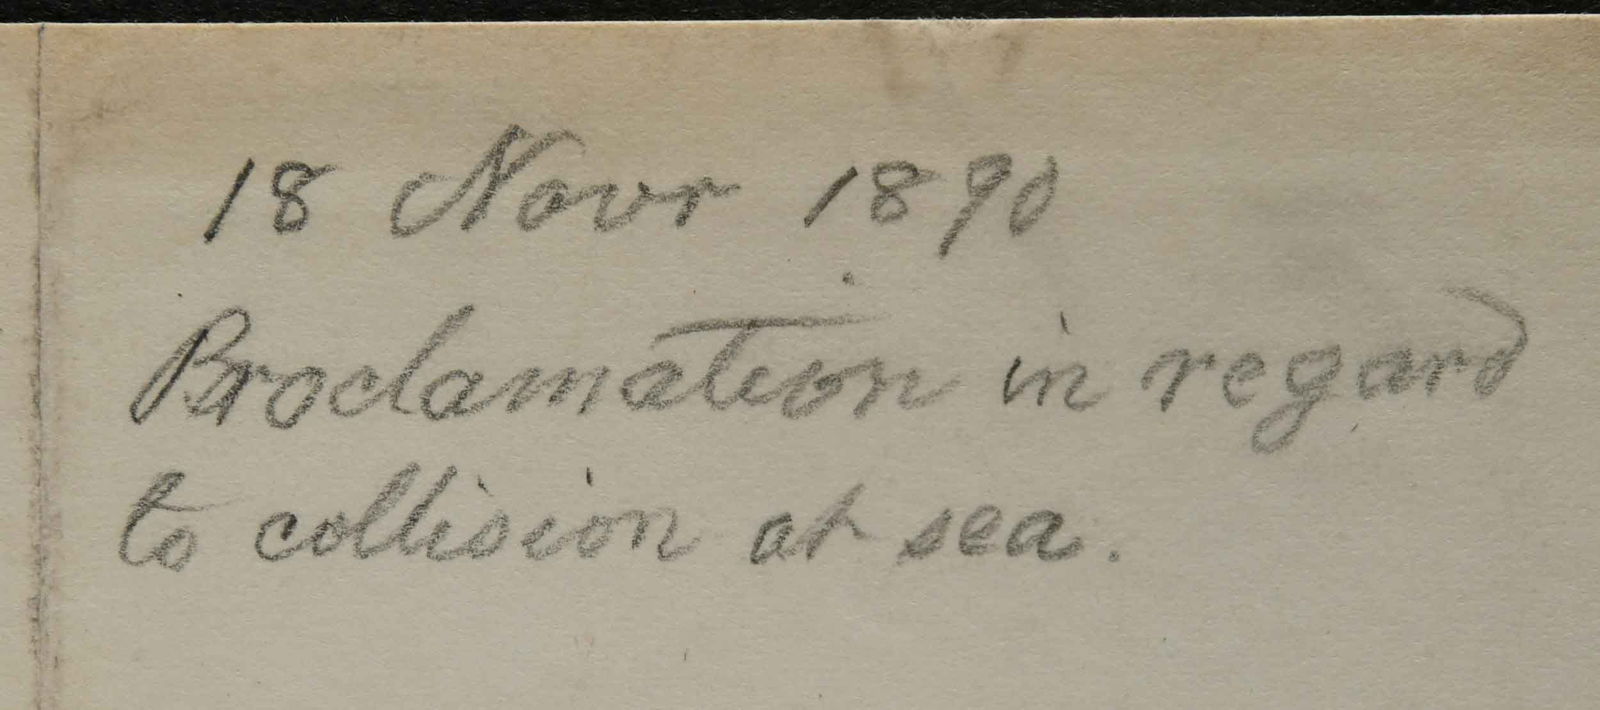 18 Novr 1890
Proclamation in regard
to collision at sea.